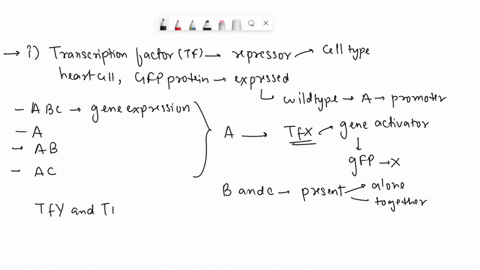 → i) Transcription factor (Tf) → repressor → cell type
heart cell, GFP protein → expressed
↳ wildtype → A → promoter
- ABC → gene expression
- A
- AB
- AC
A → TfX → gene activator
↓
gFP → X
B and c → present → alone
→ together
TfY and T